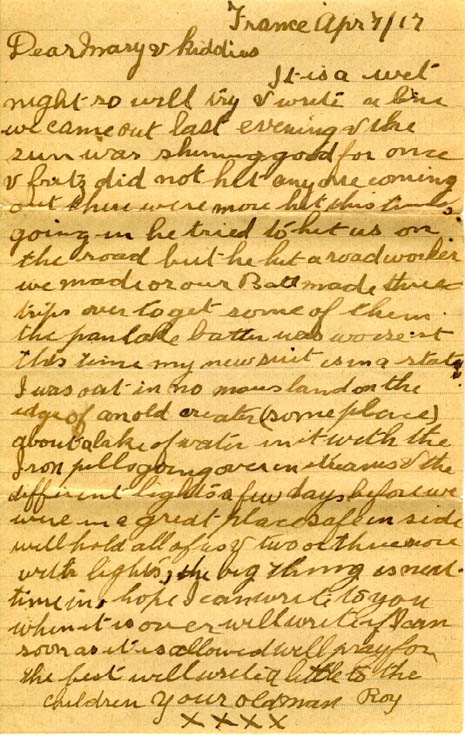 France Apr 7/17
Dear Mary & Kiddies
It is a wet
night so will try & write a line
we came out last evening & the
sun was shining good for once
& fritz did not het anyone coming
out there were more het this time
going in he tried to het us on
the road but he het a road worker
we made or our Batt made three
trips over to get some of them
the pancake batter was worse at
this time my new suit is in a state
I was out in no mans land on the
edge of an old creater (some place)
about a lake of water in it with the
Iron pills going over in streams & the
different lights a few days before we
were in a great place safe in side
will hold all of us & two or three more
with lights, the big thing is next
time in, hope I can write to you
when it is over will write if I can
soon as it is allowed will pray for
the best will write a little to the
children Your old man Roy
x x x x